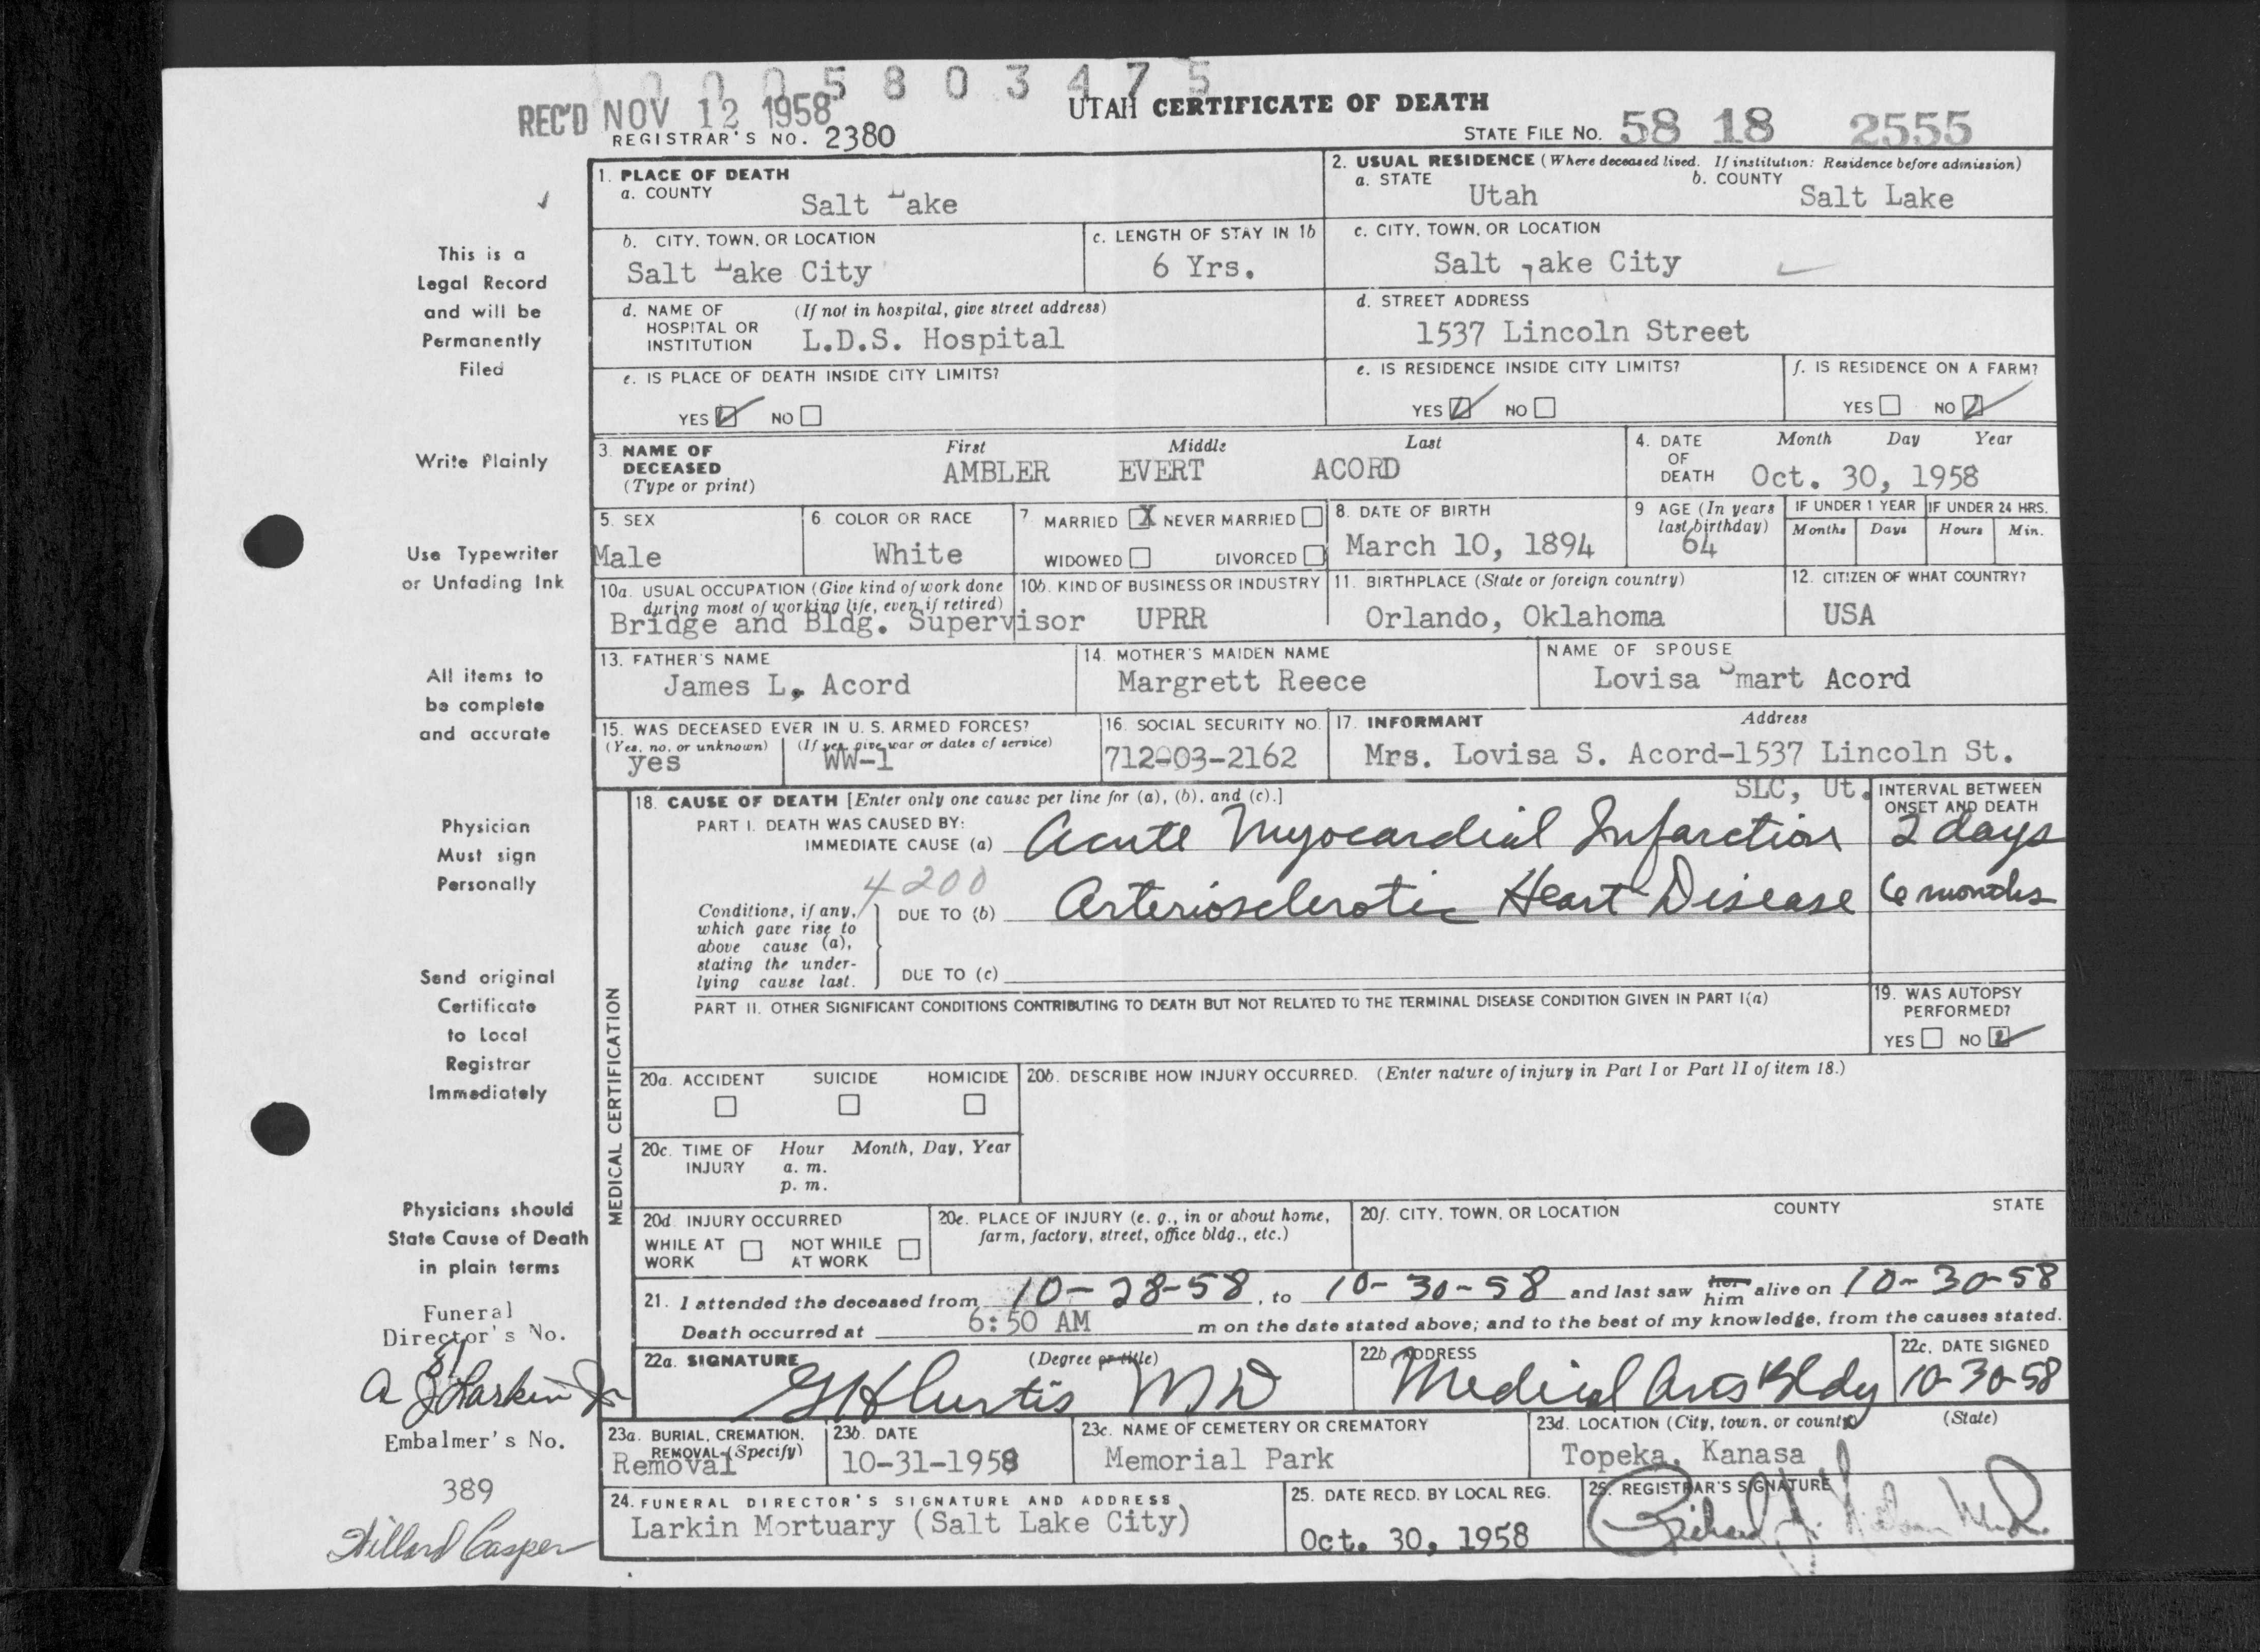 0 0 0 5 8 0 3 4 7 5
REC'D NOV 12 1958
UTAH CERTIFICATE OF DEATH
REGISTRAR'S NO. 2380
STATE FILE NO. 58 18 2555
1. PLACE OF DEATH
a. COUNTY
Salt Lake
2. USUAL RESIDENCE (Where deceased lived. If institution: Residence before admission)
a. STATE
Utah
b. COUNTY
Salt Lake
b. CITY, TOWN, OR LOCATION
Salt Lake City
c. LENGTH OF STAY IN 1b
6 Yrs.
c. CITY, TOWN, OR LOCATION
Salt Lake City
d. NAME OF HOSPITAL OR INSTITUTION
(If not in hospital, give street address)
L.D.S. Hospital
d. STREET ADDRESS
1537 Lincoln Street
e. IS PLACE OF DEATH INSIDE CITY LIMITS?
YES NO
e. IS RESIDENCE INSIDE CITY LIMITS?
YES NO
f. IS RESIDENCE ON A FARM?
YES NO
3. NAME OF DECEASED (Type or print)
First Middle Last
AMBLER EVERT ACORD
4. DATE OF DEATH
Month Day Year
Oct. 30, 1958
5. SEX
Male
6. COLOR OR RACE
White
7 MARRIED X NEVER MARRIED
WIDOWED DIVORCED
8. DATE OF BIRTH
March 10, 1894
9 AGE (In years last birthday)
64
IF UNDER 1 YEAR
Months Days
IF UNDER 24 HRS.
Hours Min.
10a. USUAL OCCUPATION (Give kind of work done during most of working life, even if retired)
Bridge and Bldg. Supervisor
10b. KIND OF BUSINESS OR INDUSTRY
UPRR
11. BIRTHPLACE (State or foreign country)
Orlando, Oklahoma
12. CITIZEN OF WHAT COUNTRY?
USA
13. FATHER'S NAME
James L. Acord
14. MOTHER'S MAIDEN NAME
Margrett Reece
NAME OF SPOUSE
Lovisa Smart Acord
15. WAS DECEASED EVER IN U. S. ARMED FORCES?
(Yes, no, or unknown) (If yes, give war or dates of service)
yes WW-1
16. SOCIAL SECURITY NO.
712-03-2162
17. INFORMANT Address
Mrs. Lovisa S. Acord-1537 Lincoln St.
SLC, Ut.
MEDICAL CERTIFICATION
18. CAUSE OF DEATH [Enter only one cause per line for (a), (b), and (c).]
INTERVAL BETWEEN ONSET AND DEATH
PART I. DEATH WAS CAUSED BY:
IMMEDIATE CAUSE (a) Acute Myocardial Infarction 2 days
4200
Conditions, if any, which gave rise to above cause (a), stating the underlying cause last.
DUE TO (b) Arteriosclerotic Heart Disease 6 months
DUE TO (c)
PART II. OTHER SIGNIFICANT CONDITIONS CONTRIBUTING TO DEATH BUT NOT RELATED TO THE TERMINAL DISEASE CONDITION GIVEN IN PART I(a)
19. WAS AUTOPSY PERFORMED?
YES NO
20a. ACCIDENT SUICIDE HOMICIDE
20b. DESCRIBE HOW INJURY OCCURRED. (Enter nature of injury in Part I or Part II of item 18.)
20c. TIME OF INJURY
Hour Month, Day, Year
a. m.
p. m.
20d. INJURY OCCURRED
WHILE AT WORK NOT WHILE AT WORK
20e. PLACE OF INJURY (e. g., in or about home, farm, factory, street, office bldg., etc.)
20f. CITY, TOWN, OR LOCATION COUNTY STATE
21. I attended the deceased from 10-28-58, to 10-30-58 and last saw her him alive on 10-30-58
Death occurred at 6:50 AM m on the date stated above; and to the best of my knowledge, from the causes stated.
22a. SIGNATURE (Degree or title)
G H Curtis MD
22b. ADDRESS
Medical Arts Bldg
22c. DATE SIGNED
10-30-58
23a. BURIAL, CREMATION, REMOVAL (Specify)
Removal
23b. DATE
10-31-1958
23c. NAME OF CEMETERY OR CREMATORY
Memorial Park
23d. LOCATION (City, town, or county) (State)
Topeka, Kanasa
24. FUNERAL DIRECTOR'S SIGNATURE AND ADDRESS
Larkin Mortuary (Salt Lake City)
25. DATE RECD. BY LOCAL REG.
Oct. 30, 1958
25. REGISTRAR'S SIGNATURE
This is a
Legal Record
and will be
Permanently
Filed
Write Plainly
Use Typewriter
or Unfading Ink
All items to
be complete
and accurate
Physician
Must sign
Personally
Send original
Certificate
to Local
Registrar
Immediately
Physicians should
State Cause of Death
in plain terms
Funeral
Director's No.
81
A J Larkin Jr
Embalmer's No.
389
Willard Casper